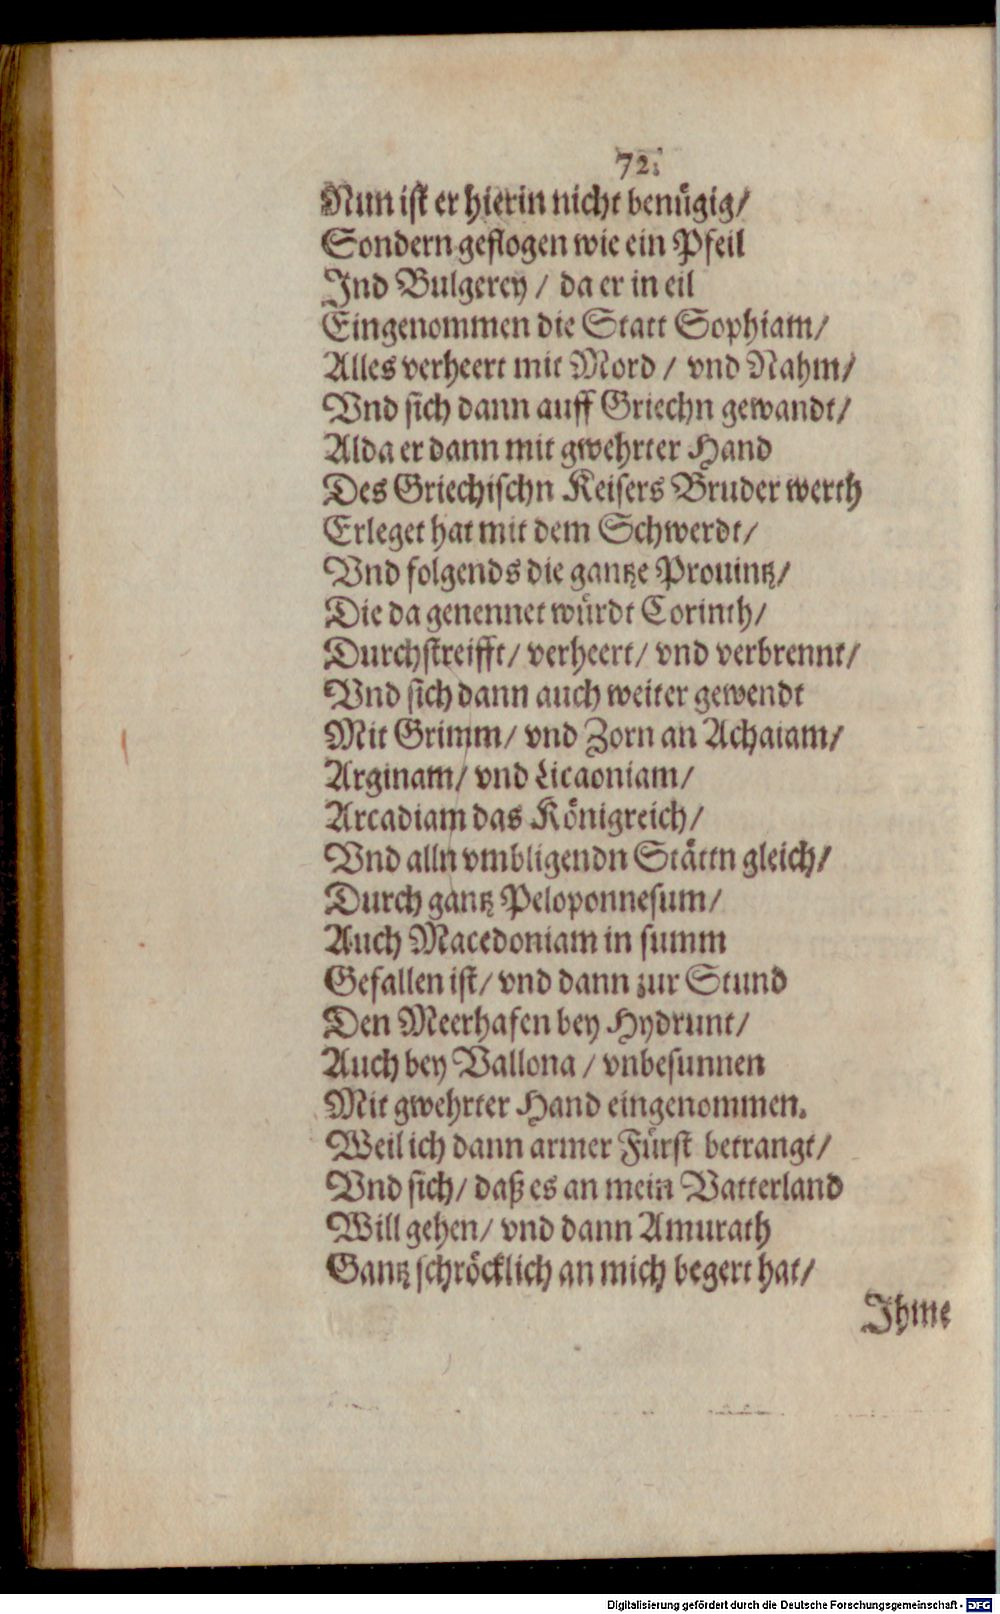 72.
Nun ist er hierin nicht benügig/
Sondern geflogen wie ein Pfeil
Ind Bulgerey / da er in eil
Eingenommen die Statt Sophiam/
Alles verheert mit Mord / vnd Nahm/
Vnd sich dann auff Griechn gewandt/
Alda er dann mit gwehrter Hand
Des Griechischn Keisers Bruder werth
Erleget hat mit dem Schwerdt/
Vnd folgends die gantze Prouintz/
Die da genennet würdt Corinth/
Durchstreifft/ verheert/ vnd verbrennt/
Vnd sich dann auch weiter gewendt
Mit Grimm/ vnd Zorn an Achaiam/
Arginam/ vnd Licaoniam/
Arcadiam das Königreich/
Vnd alln vmbligendn Stättn gleich/
Durch gantz Peloponnesum/
Auch Macedoniam in summ
Gefallen ist/ vnd dann zur Stund
Den Meerhafen bey Hydrunt/
Auch bey Vallona / vnbesunnen
Mit gwehrter Hand eingenommen.
Weil ich dann armer Fürst betrangt/
Vnd sich/ daß es an mein Vatterland
Will gehen/ vnd dann Amurath
Gantz schröcklich an mich begert hat/
Ihme
Digitalisierung gefördert durch die Deutsche Forschungsgemeinschaft - DFG